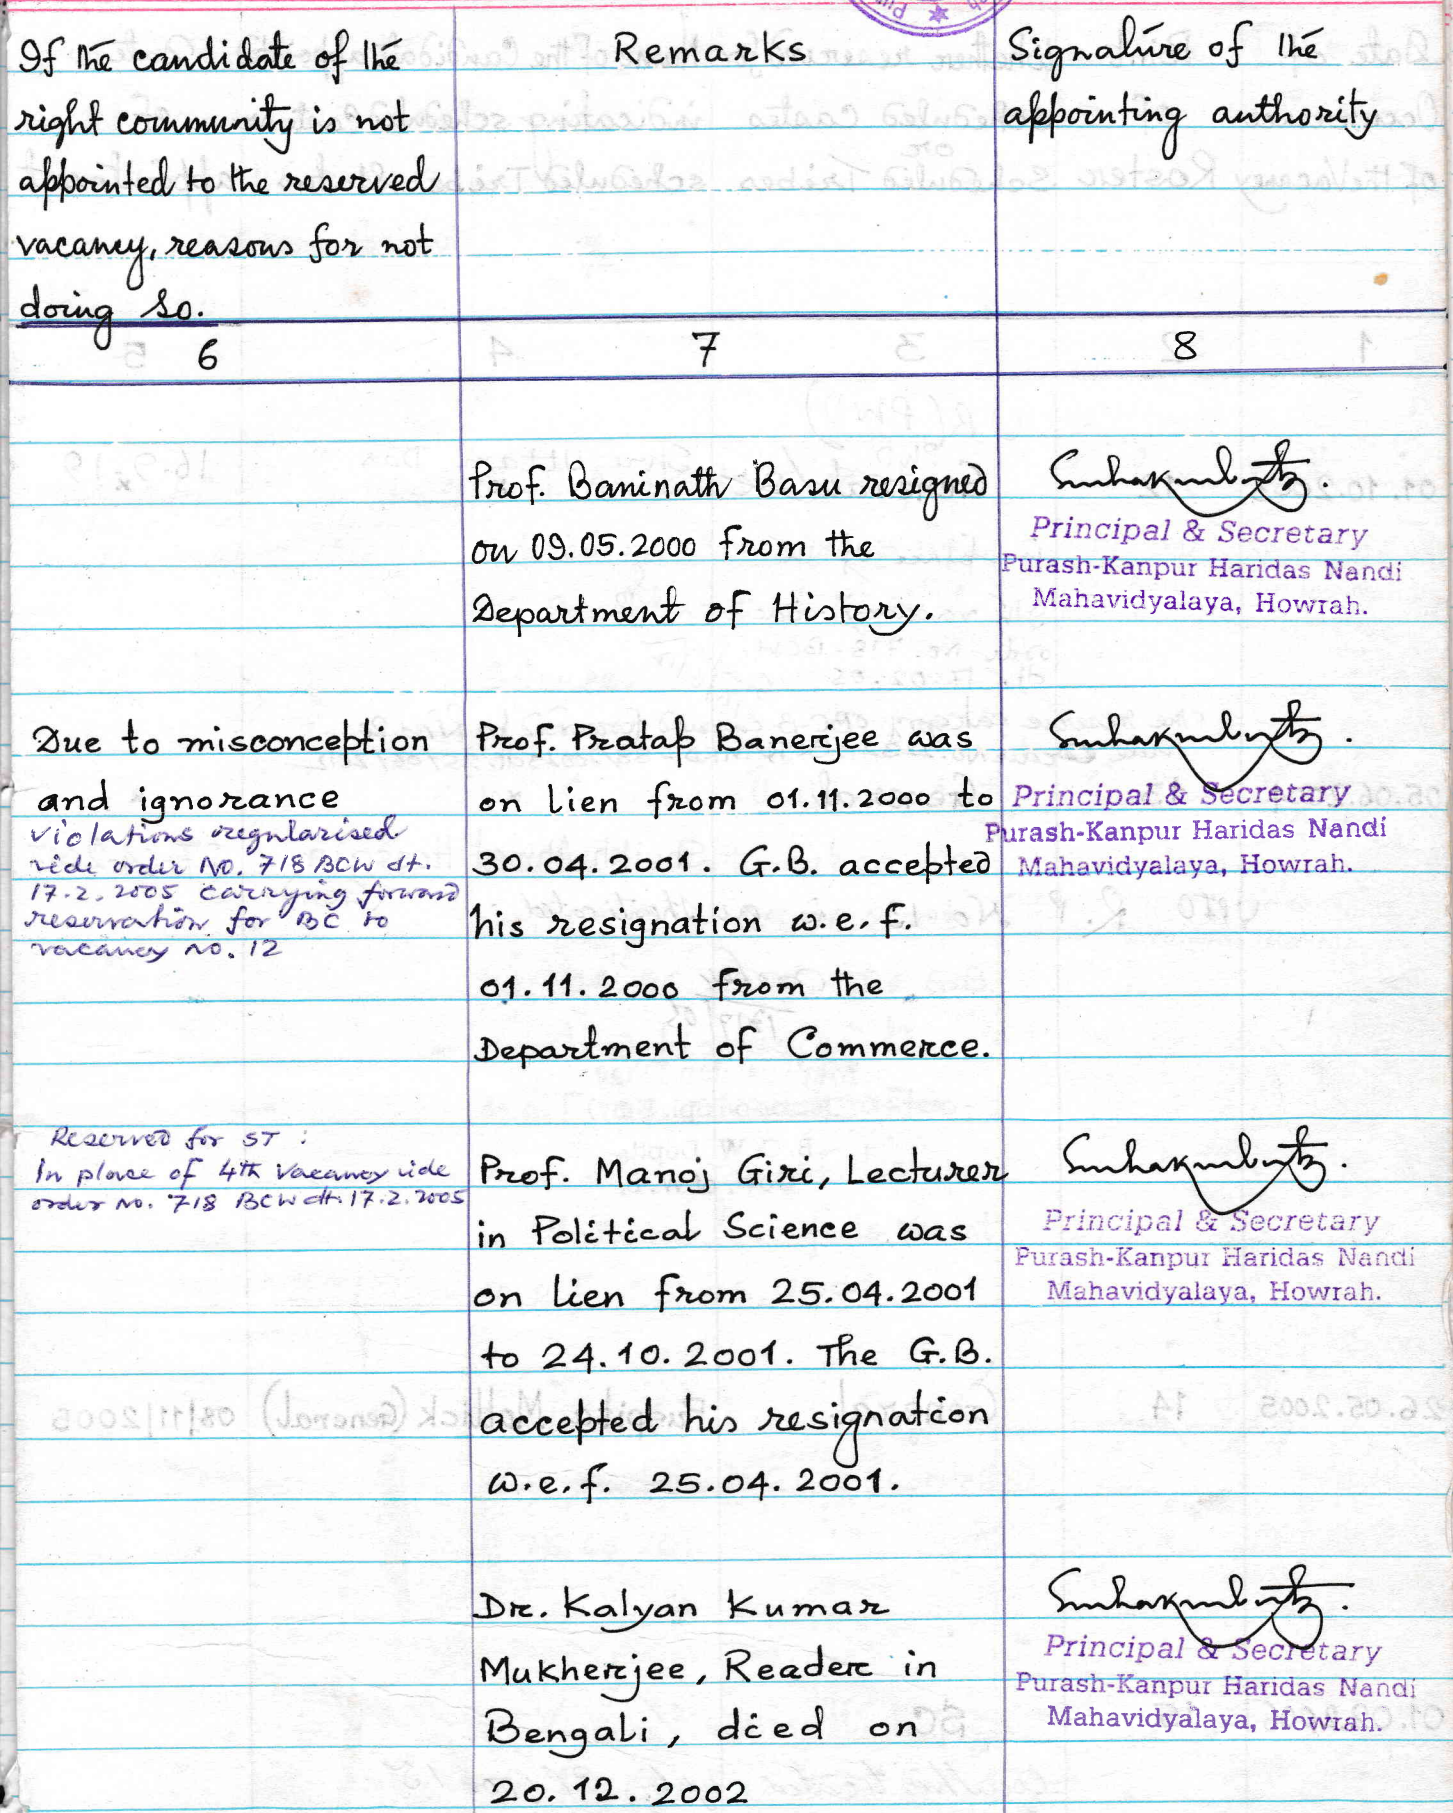 If the candidate of the
right community is not
appointed to the reserved
vacancy, reasons for not
doing so.
Remarks
Signature of the
appointing authority
6
7
8
Prof. Baninath Basu resigned
on 09.05.2000 from the
Department of History.
Principal & Secretary
Purash-Kanpur Haridas Nandi
Mahavidyalaya, Howrah.
Due to misconception
and ignorance
violations regularised
vide order No. 718 BCW dt.
17.2.2005 carrying forward
reservation for BC to
vacancy no. 12
Prof. Pratap Banerjee was
on lien from 01.11.2000 to
30.04.2001. G.B. accepted
his resignation w.e.f.
01.11.2000 from the
Department of Commerce.
Principal & Secretary
Purash-Kanpur Haridas Nandi
Mahavidyalaya, Howrah.
Reserved for ST :
In place of 4th Vacancy vide
order No. 718 BCW dt. 17.2.2005
Prof. Manoj Giri, Lecturer
in Political Science was
on lien from 25.04.2001
to 24.10.2001. The G.B.
accepted his resignation
w.e.f. 25.04.2001.
Principal & Secretary
Purash-Kanpur Haridas Nandi
Mahavidyalaya, Howrah.
Dr. Kalyan Kumar
Mukherjee, Reader in
Bengali, died on
20.12.2002
Principal & Secretary
Purash-Kanpur Haridas Nandi
Mahavidyalaya, Howrah.